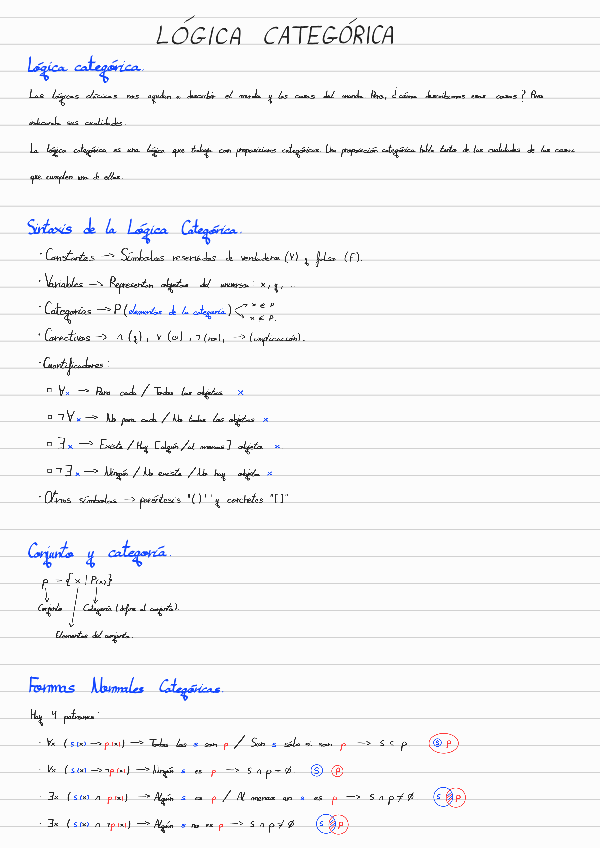 LÓGICA CATEGÓRICA
Lógica categórica.
Las lógicas clásicas nos ayudan a describir el mundo y las cosas del mundo. Pero, ¿cómo describimos esas cosas? Pues
indicando sus cualidades.
La lógica categórica es una lógica que trabaja con proposiciones categóricas. Una proposición categórica habla tanto de las cualidades de las cosas
que cumplen una de ellas.
Sintaxis de la Lógica Categórica.
· Constantes → Símbolos reservados de verdadero (V) y falso (F).
· Variables → Representan objetos del universo: x, y, ...
· Categorías → P (elementos de la categoría) x ∈ P
x ∉ P.
· Conectivos → ∧ (y), ∨ (o), ¬ (no), → (implicación).
· Cuantificadores:
▫ ∀x → Para cada / Todos los objetos x
▫ ¬∀x → No para cada / No todos los objetos x
▫ ∃x → Existe / Hay [algún / al menos] objeto x
▫ ¬∃x → Ningún / No existe / No hay objeto x
· Otros símbolos → paréntesis "()" y corchetes "[]"
Conjunto y categoría.
P = {x | P(x)}
Conjunto Categoría (define al conjunto).
Elementos del conjunto.
Formas Normales Categóricas.
Hay 4 patrones:
· ∀x (S(x) → P(x)) → Todos los S son P / Son S sólo si son P → S ⊂ P S P
· ∀x (S(x) → ¬P(x)) → Ningún S es P → S ∩ P = ∅ S P
· ∃x (S(x) ∧ P(x)) → Algún S es P / Al menos un S es P → S ∩ P ≠ ∅ S P
· ∃x (S(x) ∧ ¬P(x)) → Algún S no es P → S ∩ P ≠ ∅ S P